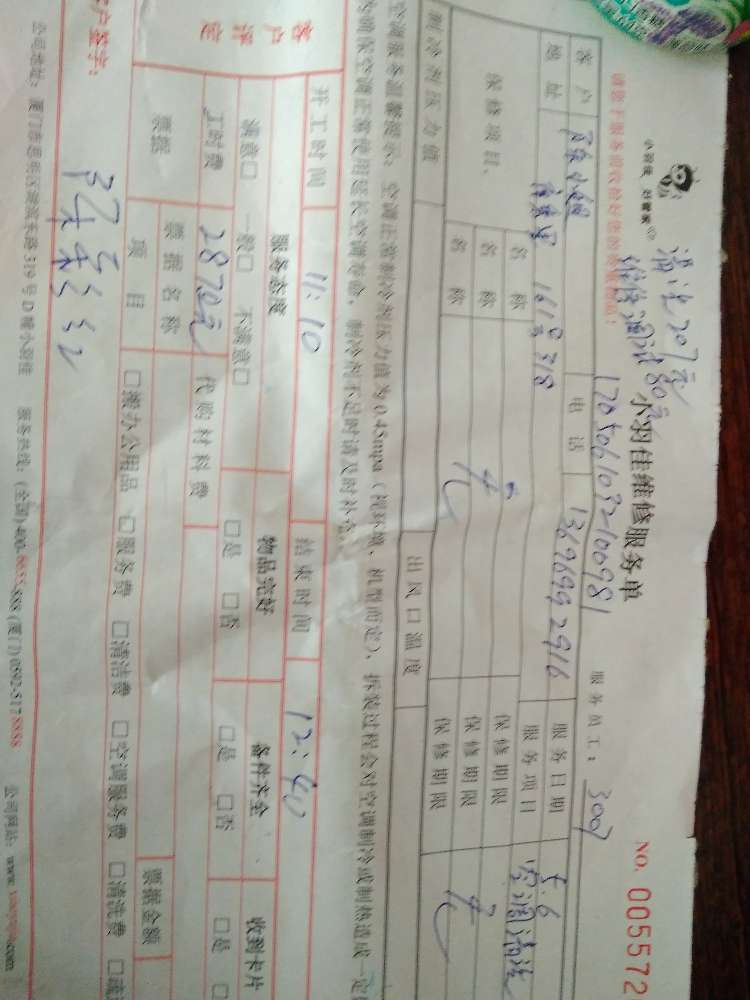 清洗207元
维修调试80元
小羽佳 好管家
小羽佳维修服务单
NO. 005572
1705061092100981
服务员工: 3007
客户
电话 13696992916
服务日期 5.6
地址 1618号318
服务项目 空调清洗
保修项目
名称
保修期限
名称
保修期限
名称
保修期限
制冷剂压力值
出风口温度
空调服务温馨提示: 空调正常制冷剂压力值为0.45mpa (视环境、机型而定), 拆装过程会对空调制冷或制热造成一定
为确保空调正常使用延长空调寿命, 制冷剂不足时请及时补充。
开工时间 11:10
结束时间 12:40
客户评定
服务态度
物品完好
备件齐全
收到卡片
满意□ 一般□ 不满意□
□是 □否
□是 □否
□是 □
工时费 287.0元
代购材料费
票据
票据名称
票据金额
项目
□搬办公用品 □服务费 □清洁费 □空调服务费 □清洗费
客户签字:
公司地址: 厦门市思明区湖滨东路319号D幢小羽佳 服务热线: (全国)400-8655-888 (厦门)0592-5178888 公司网站: